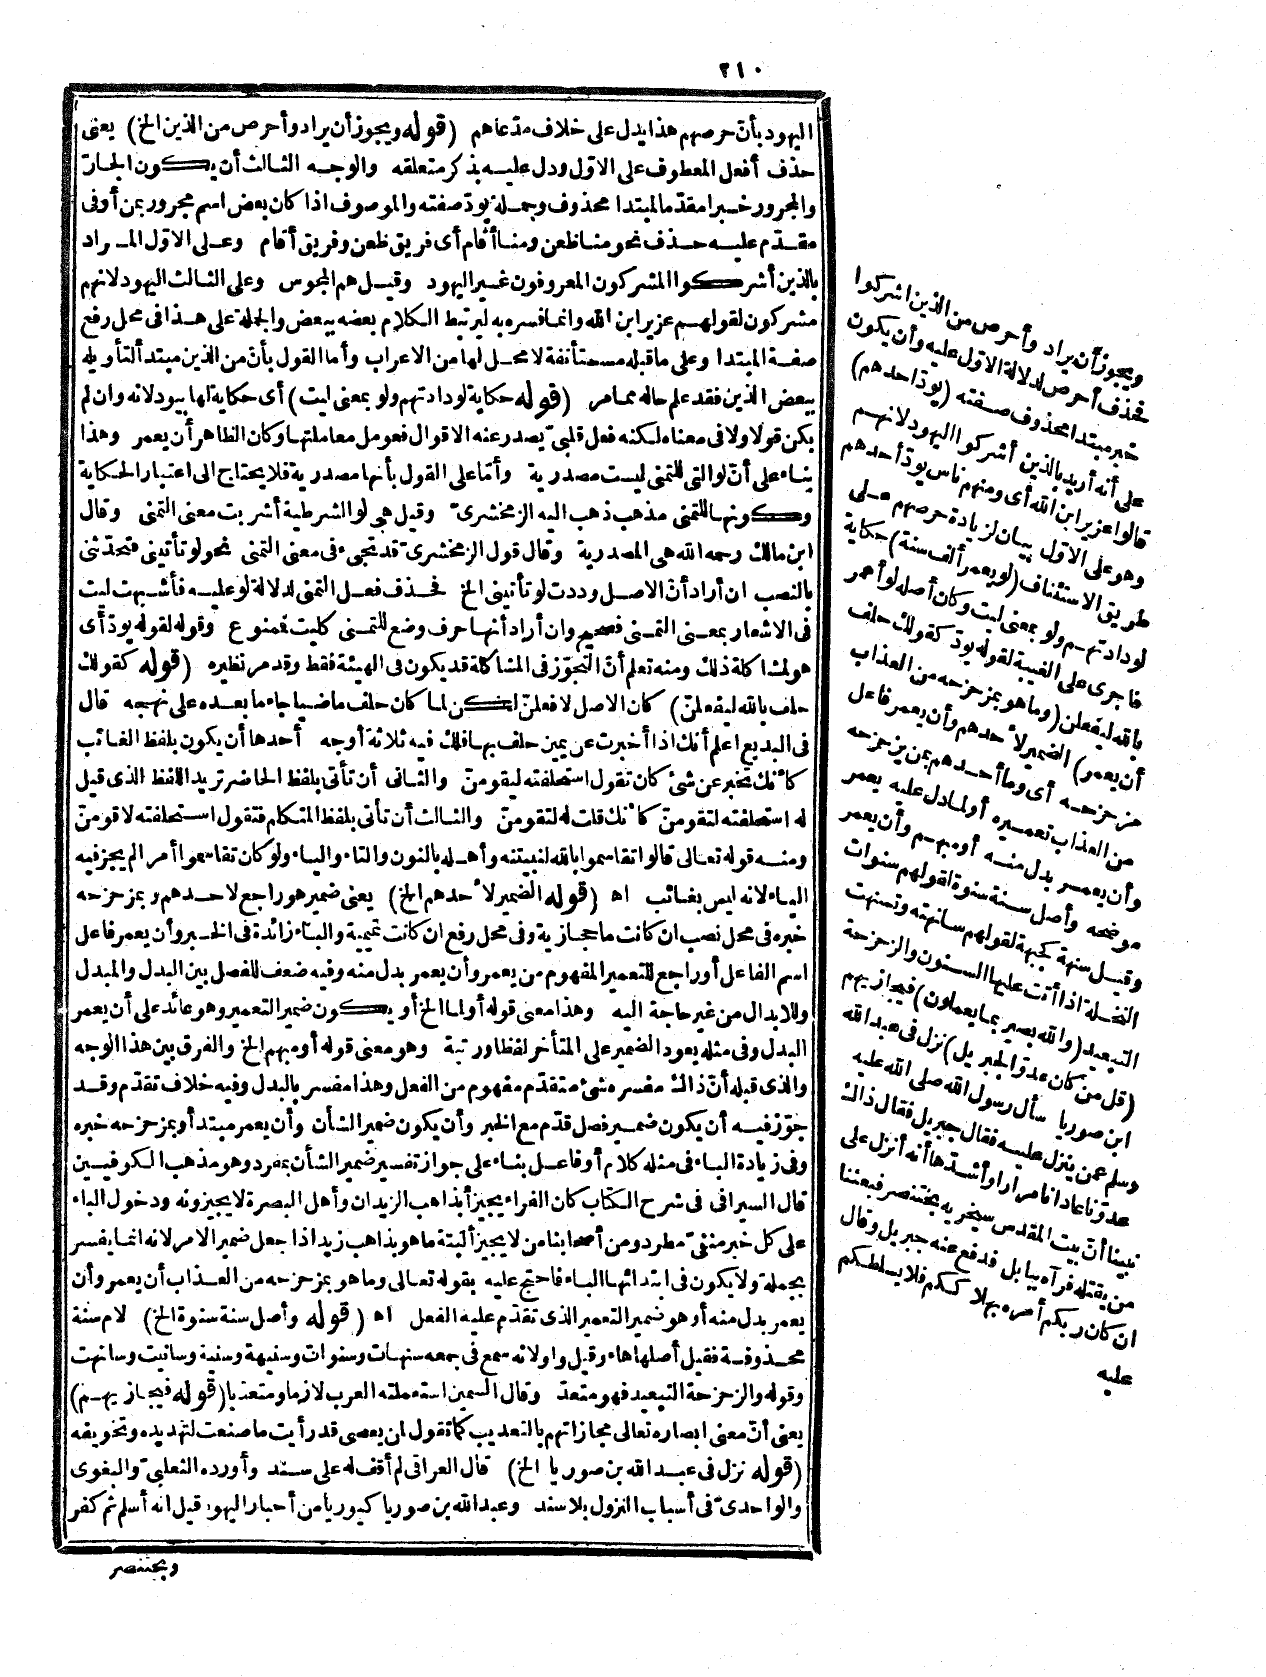 ٢١٠
اليهود بأنّ حرصهم هذا يدل على خلاف مدّعاهم (قوله ويجوز أن يراد وأحرص من الذين الخ) يعنى
حذف أفعل المعطوف على الاوّل ودل عليه بذكر متعلقه والوجه الثالث أن يكون الجارّ
والمجرور خبرا مقدّما لمبتدا محذوف وجملة يودّ صفته والموصوف اذا كان بعض اسم مجرور بمن أو فى
مقدّم عليه حذف نحو منا ظعن ومنا أقام أى فريق ظعن وفريق أقام وعلى الاوّل المراد
بالذين أشركوا المشركون المعروفون غير اليهود وقيل هم المجوس وعلى الثالث اليهود لانهم
مشركون لقولهم عزير ابن الله وانما فسره به ليرتبط الكلام بعضه ببعض والجملة على هذا فى محل رفع
صفة المبتدا وعلى ما قبله مستأنفة لا محل لها من الاعراب وأما القول بأنّ من الذين مبتدأ لتأويله
ببعض الذين فقد علم حاله مما مر (قوله حكاية لودادتهم ولو بمعنى ليت) أى حكاية لها بيود لانه وان لم
يكن قولا ولا فى معناه لكنه فعل قلبىّ يصدر عنه الاقوال فعومل معاملتها وكان الظاهر أن يعمر وهذا
بناء على أنّ لو التى للتمنى ليست مصدرية وأمّا على القول بأنها مصدرية فلا يحتاج الى اعتبار الحكاية
وكونها للتمنى مذهب ذهب اليه الزمخشرىّ وقيل هى لو الشرطية أشربت معنى التمنى وقال
ابن مالك رحمه الله هى المصدرية وقال قول الزمخشرىّ قد تجىء فى معنى التمنى نحو لو تأتينى فتحدّثنى
بالنصب ان أراد أنّ الاصل وددت لو تأتينى الخ فحذف فعل التمنى لدلالة لو عليه فأشبهت ليت
فى الاشعار بمعنى التمنى فصحيح وان أراد أنها حرف وضع للتمنى كليت فممنوع وقوله لقوله يودّ أى
هو لمشاكلة ذلك ومنه تعلم أنّ التجوّز فى المشاكلة قد يكون فى الهيئة فقط وقد مر نظيره (قوله كقولك
حلف بالله ليفعلنّ) كان الاصل لافعلنّ لكن لما كان حلف ماضيا جاء ما بعده على نهجه قال
فى البديع اعلم أنك اذا أخبرت عن يمين حلف بها فلك فيه ثلاثة أوجه أحدها أن يكون بلفظ الغائب
كأنك تخبر عن شئ كان تقول استحلفته ليقومنّ والثانى أن تأتى بلفظ الحاضر تريد اللفظ الذى قيل
له استحلفته لتقومنّ كأنك قلت له لتقومنّ والثالث أن تأتى بلفظ المتكلم فتقول استحلفته لاقومنّ
ومنه قوله تعالى قالوا تقاسموا بالله لنبيتنه وأهله بالنون والتاء والياء ولو كان تقاسموا أمرا لم يجز فيه
الياء لانه ليس بغائب اه (قوله الضمير لأحدهم الخ) يعنى ضمير هو راجع لاحدهم وبمزحزحه
خبره فى محل نصب ان كانت ما حجازية وفى محل رفع ان كانت تميمية والباء زائدة فى الخبر وأن يعمر فاعل
اسم الفاعل أو راجع للتعمير المفهوم من يعمر وأن يعمر بدل منه وفيه ضعف للفصل بين البدل والمبدل
وللابدال من غير حاجة اليه وهذا معنى قوله أو لما الخ أو يكون ضمير التعمير وهو عائد على أن يعمر
البدل وفى مثله يعود الضمير على المتأخر لفظا ورتبة وهو معنى قوله أو مبهم الخ والفرق بين هذا الوجه
والذى قبله أنّ ذاك مفسره شئ متقدّم مفهوم من الفعل وهذا مفسر بالبدل وفيه خلاف تقدّم وقد
جوّز فيه أن يكون ضمير فصل قدّم مع الخبر وأن يكون ضمير الشأن وأن يعمر مبتدأ وبمزحزحه خبره
وفى زيادة الباء فى مثله كلام أو فاعل بناء على جواز تفسير ضمير الشأن بمفرد وهو مذهب الكوفيين
قال السيرافى فى شرح الكتاب كان الفراء يجيز أبذاهب الزيدان وأهل البصرة لا يجيزونه ودخول الباء
على كل خبر منفىّ مطرد ومن أصحابنا من لا يجيز ألبتة ما هو بذاهب زيد اذا جعل ضمير الامر لانه انما يفسر
بجملة ولا يكون فى ابتدائها الباء فاحتج عليه بقوله تعالى وما هو بمزحزحه من العذاب أن يعمر وأن
يعمر بدل منه أو هو ضمير التعمير الذى تقدّم عليه الفعل اه (قوله وأصل سنة سنوة الخ) لام سنة
محذوفة فقيل أصلها هاء وقيل واو لانه سمع فى جمعه سنهات وسنوات وسنيهة وسنية وسانيت وسانهت
وقوله والزحزحة التبعيد فهو متعدّ وقال السمين استعملته العرب لازما ومتعديا (قوله فيجازيهم)
يعنى أنّ معنى ابصاره تعالى مجازاتهم بالتعذيب كما تقول ان يعصى قد رأيت ما صنعت لتهديده وتخويفه
(قوله نزل فى عبد الله بن صوريا الخ) قال العراقى لم أقف له على سند وأورده الثعلبىّ والبغوى
والواحدىّ فى أسباب النزول بلا سند وعبد الله بن صوريا كبوريا من أحبار اليهود قيل انه أسلم ثم كفر
وبختنصر
ويجوز أن يراد وأحرص من الذين اشركوا
فحذف أحرص لدلالة الاوّل عليه وأن يكون
خبر مبتدا محذوف صفته (يودّ احدهم)
على أنه أريد بالذين أشركوا اليهود لانهم
قالوا عزير ابن الله أى ومنهم ناس يودّ أحدهم
وهو على الاوّل بيان لزيادة حرصهم على
طريق الاستئناف (لو يعمر ألف سنة) حكاية
لودادتهم ولو بمعنى ليت وكان أصله لو أعمر
فاجرى على الغيبة لقوله يودّ كقولك حلف
بالله ليفعلن (وما هو بمزحزحه من العذاب
أن يعمر) الضمير لأحدهم وأن يعمر فاعل
مزحزحه أى وما أحدهم بمن يزحزحه
من العذاب تعميره أو لما دل عليه يعمر
وأن يعمر بدل منه أو مبهم وأن يعمر
موضحه وأصل سنة سنوة لقولهم سنوات
وقيل سنهة كجبهة لقولهم سانهته وتسنهت
النخلة اذا أتت عليها السنون والزحزحة
التبعيد (والله بصير بما يعملون) فيجازيهم
(قل من كان عدوّا لجبريل) نزل فى عبد الله
ابن صوريا سأل رسول الله صلى الله عليه
وسلم عمن ينزل عليه فقال جبريل فقال ذاك
عدوّنا عادانا مرارا وأشدّها أنه أنزل على
نبينا أنّ بيت المقدس سيخربه بختنصر فبعثنا
من يقتله فرآه ببابل فدفع عنه جبريل وقال
ان كان ربكم أمره بهلاككم فلا يسلطكم
عليه